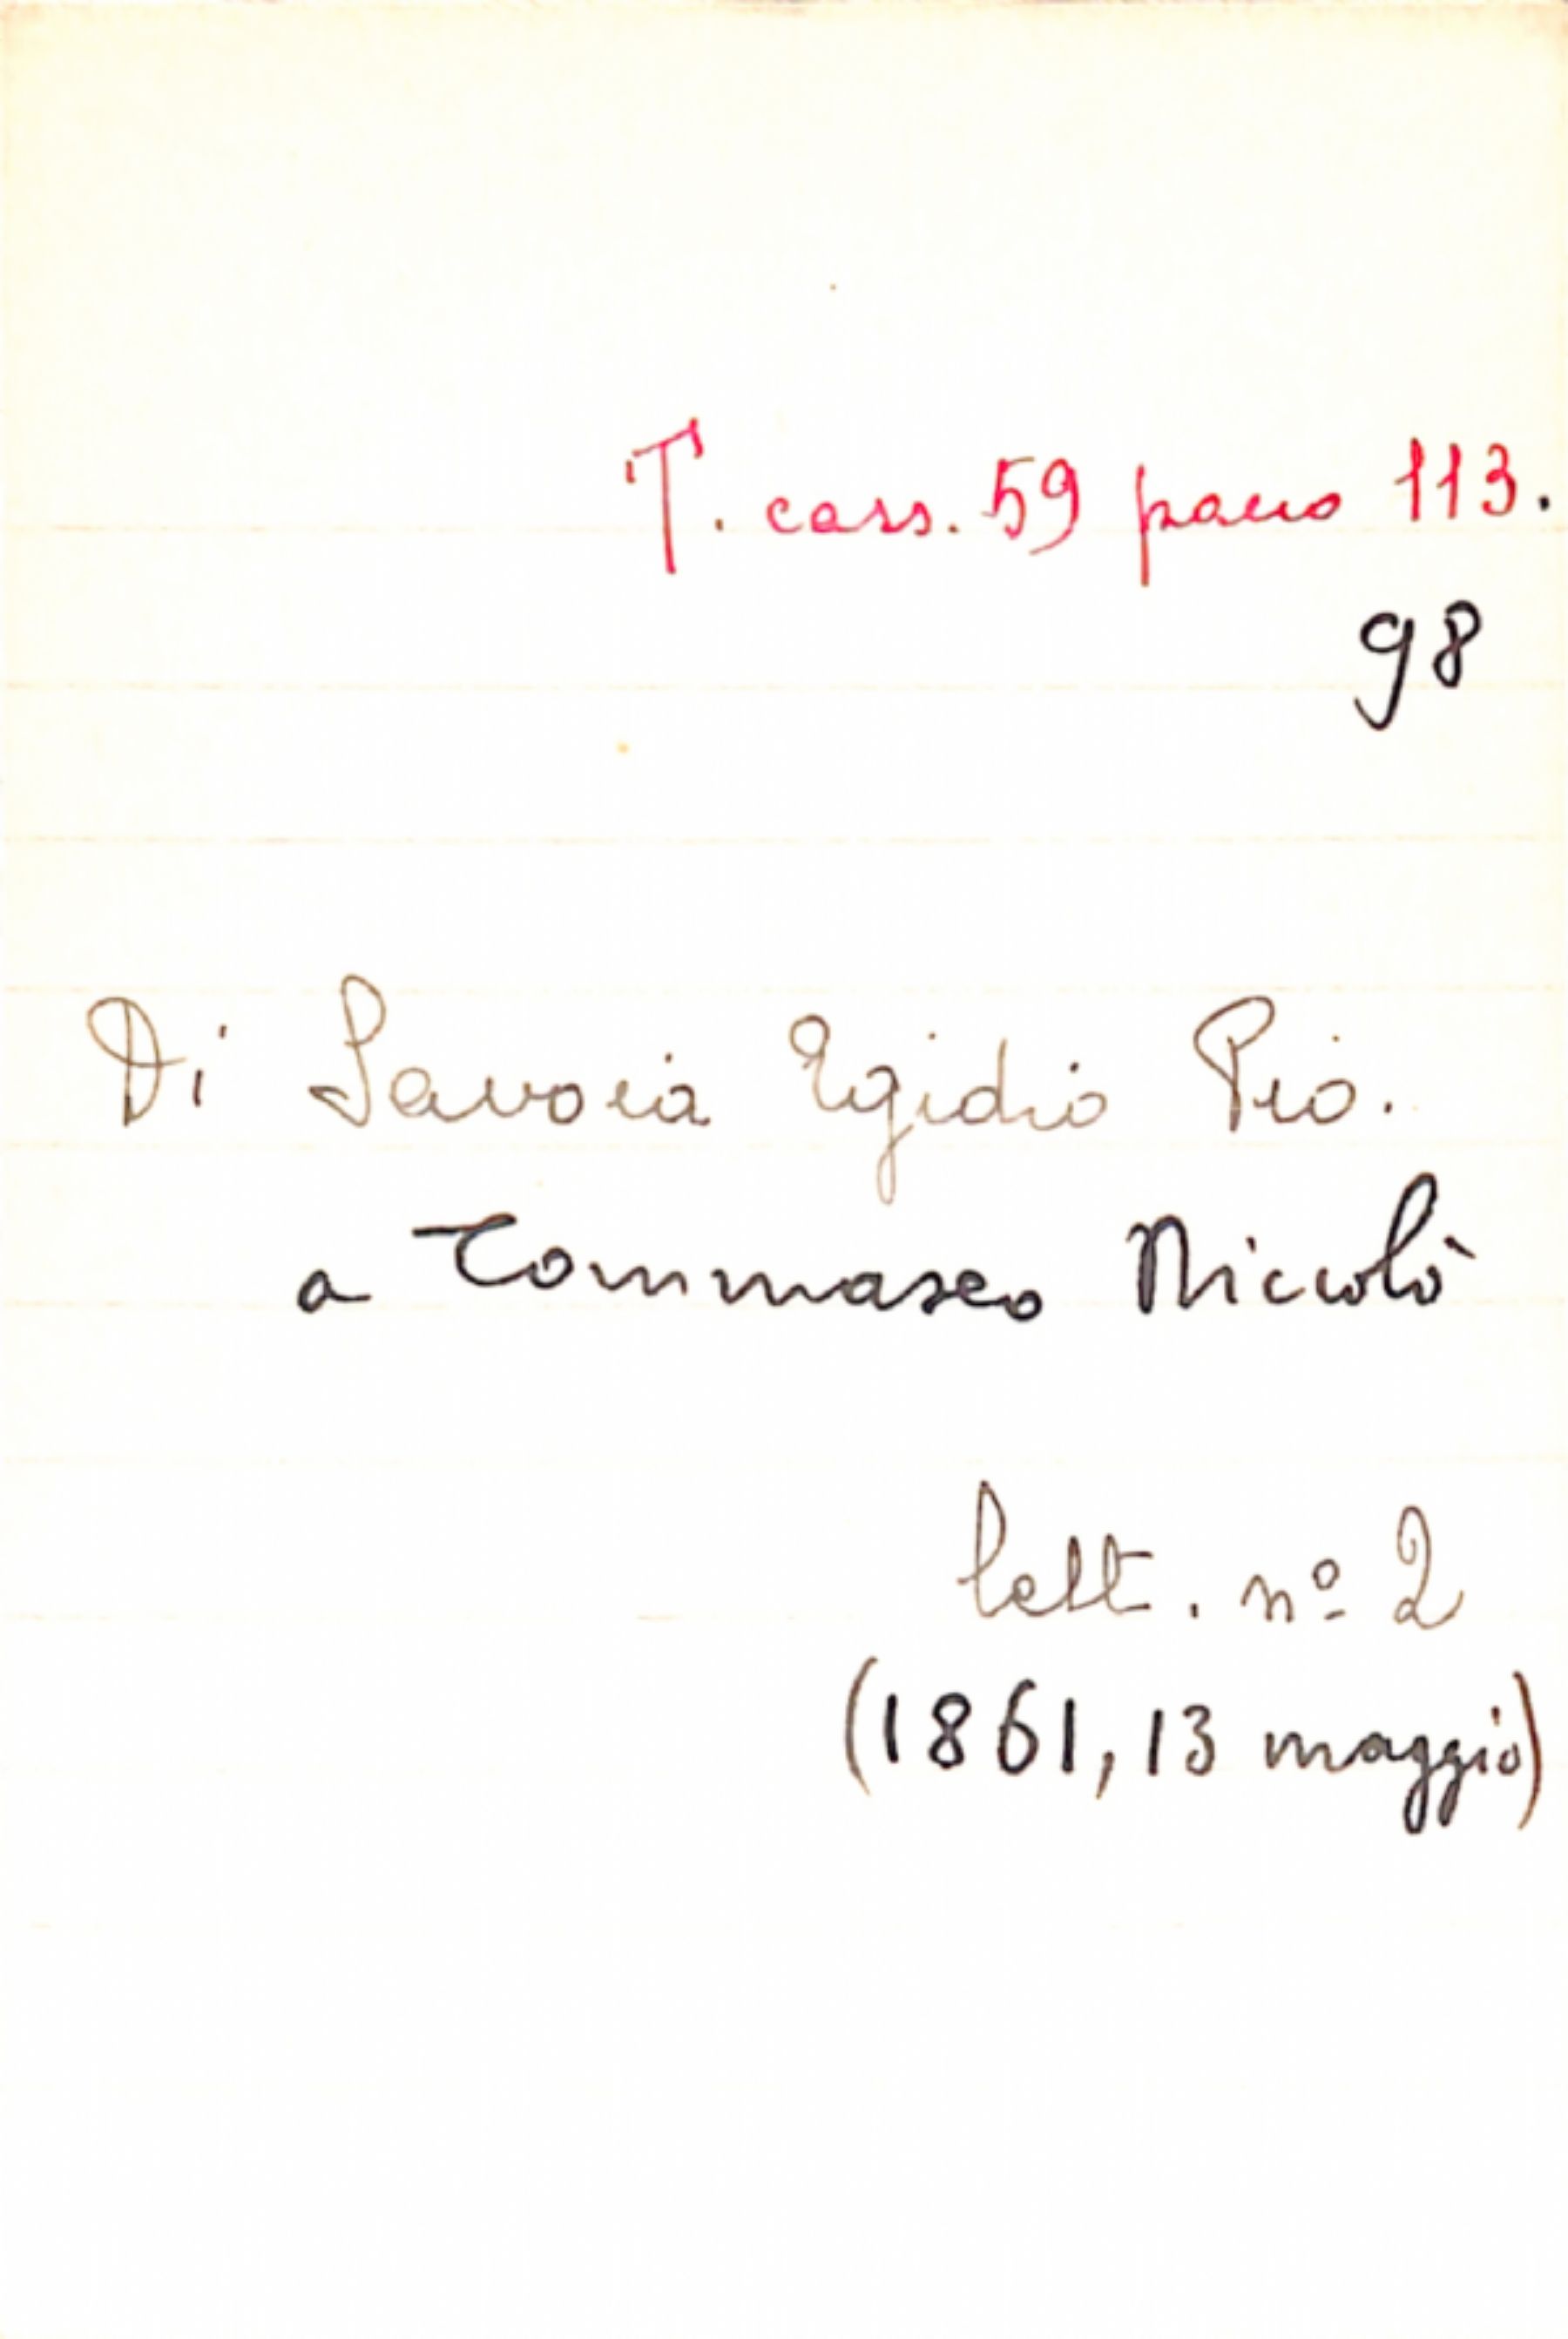 T. cass. 59 pacco 113.
98
Di Savoia Egidio Pio.
a Tommaseo Niccolò
lett. nº 2
(1861, 13 maggio)